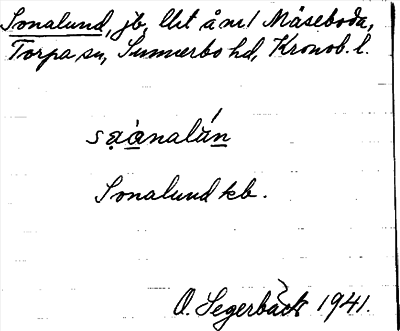 Sonalund, jb, lht å m1 Måseboda,
Torpa sn, Sunnerbo hd, Kronob. l.
sạànalún
Sonalund kb.
O. Segerbäck 1941.